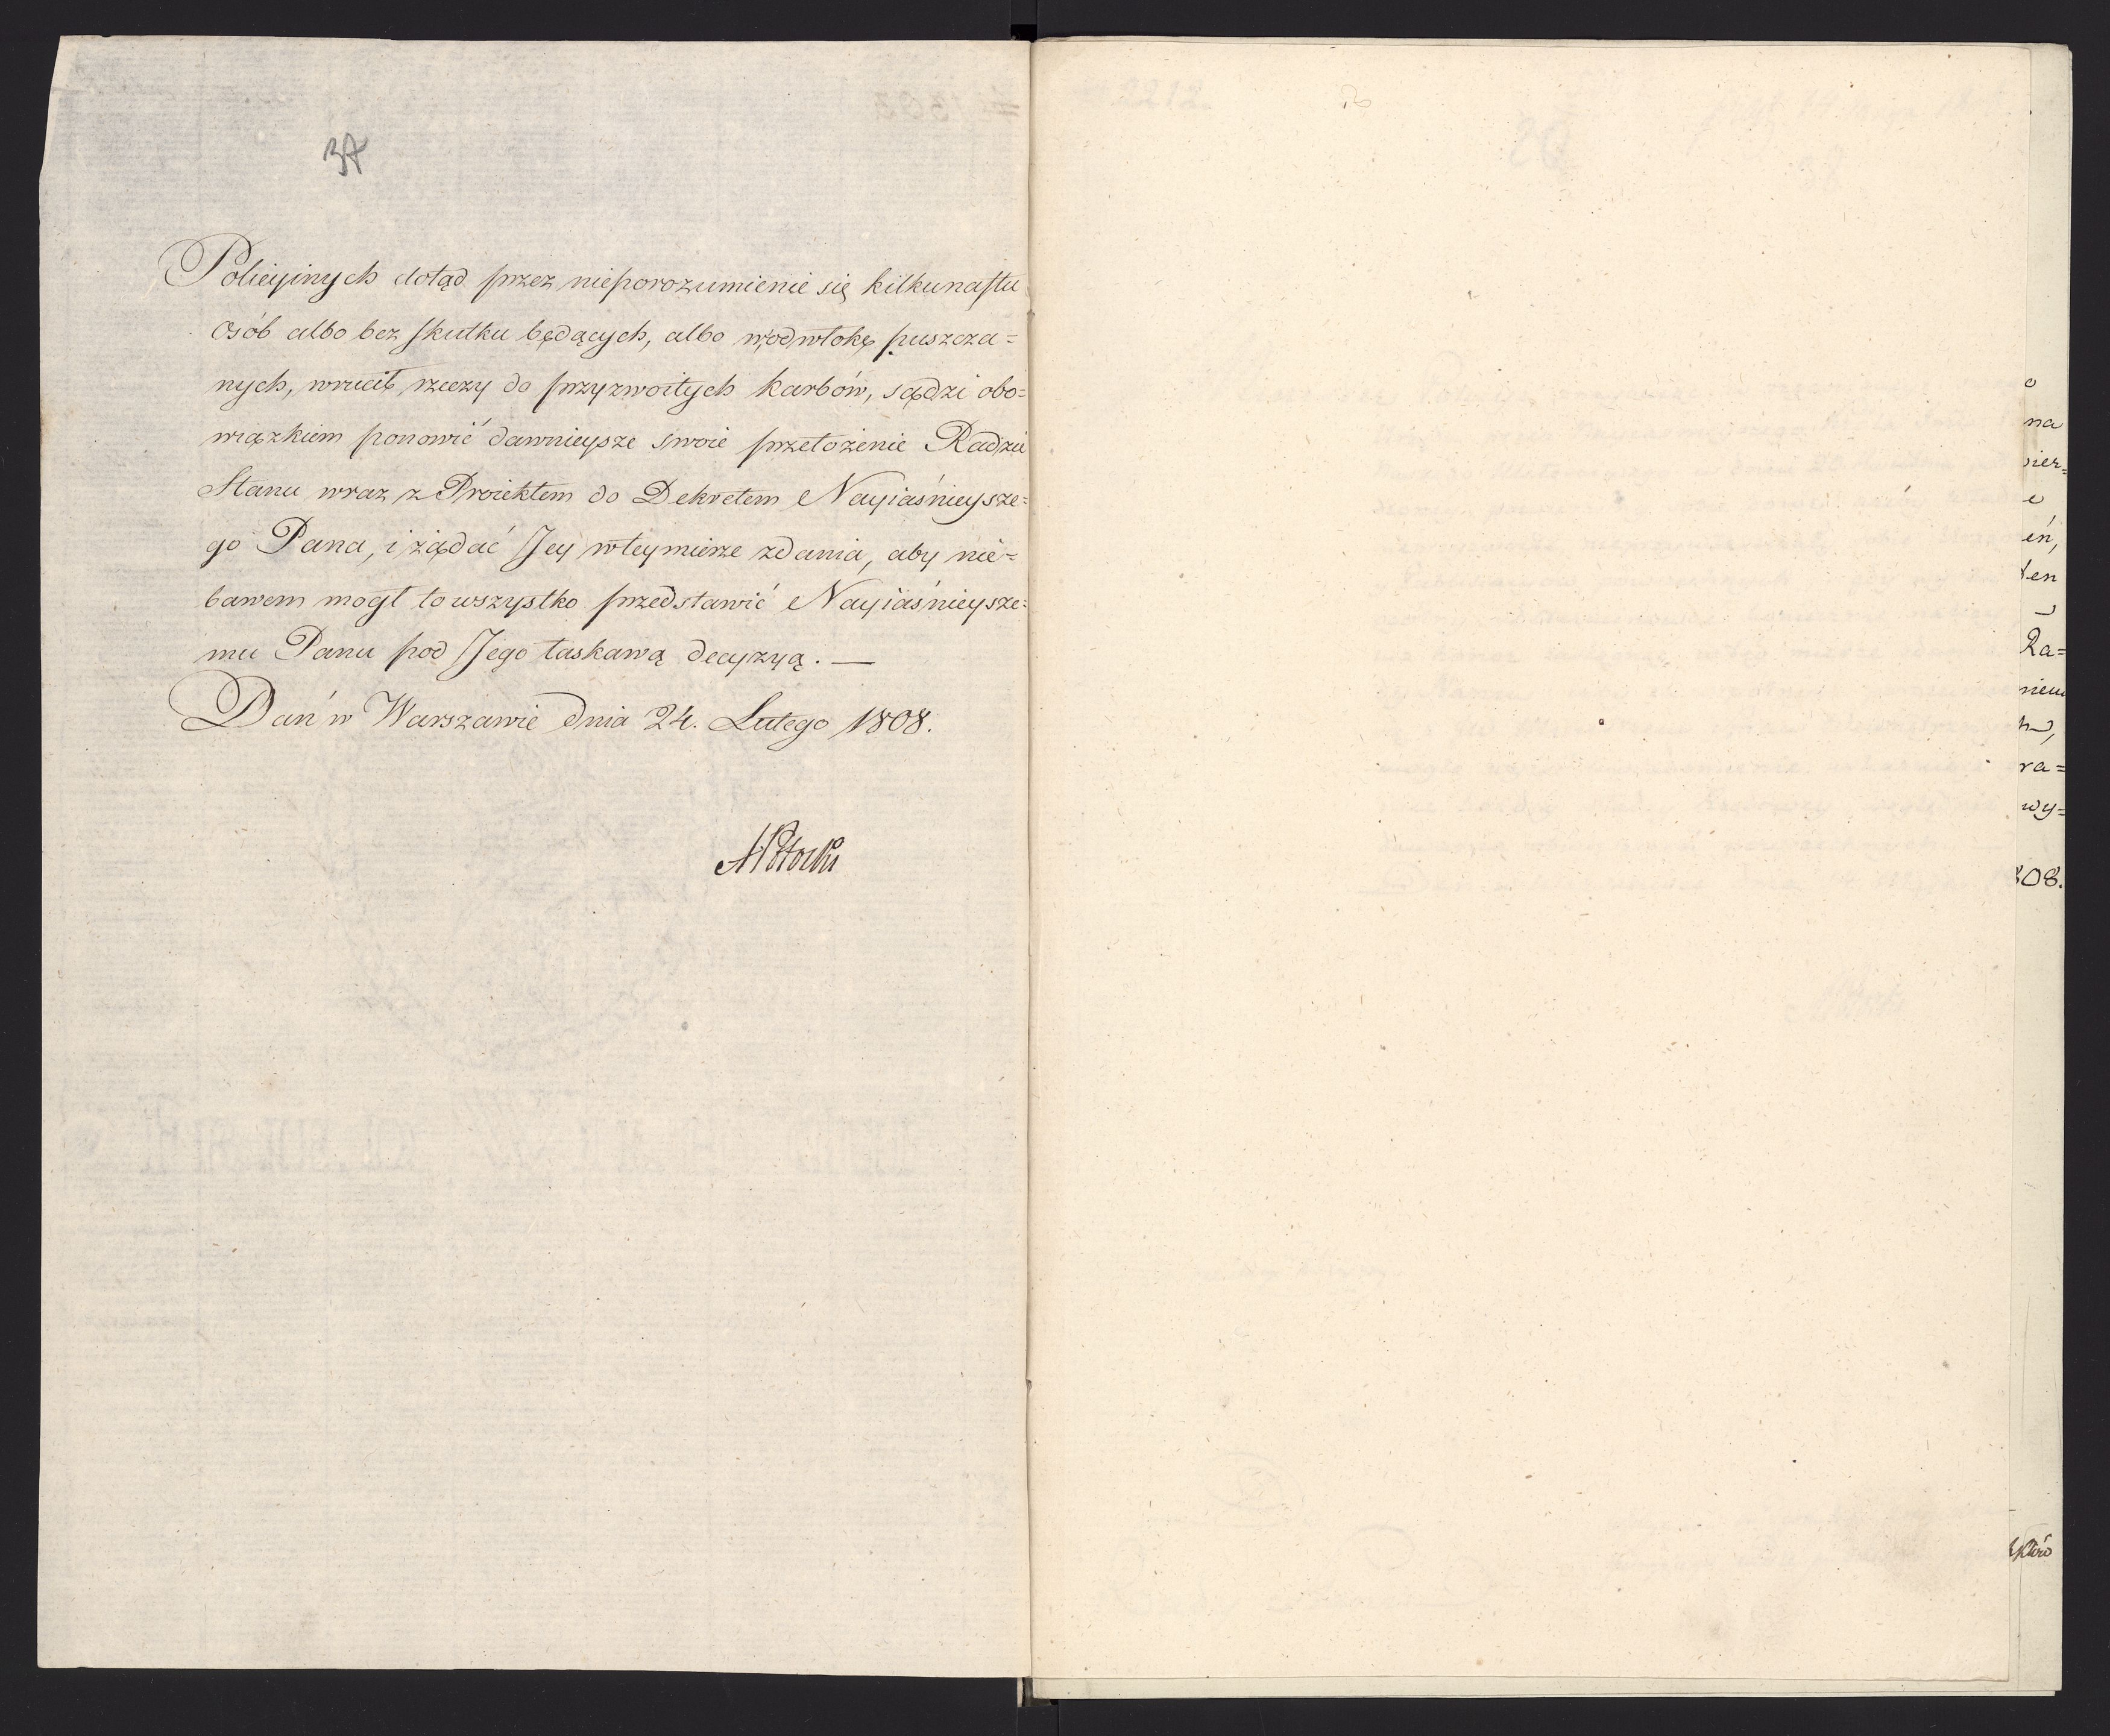 37
Policyinych dotąd przez nieporozumienie się kilkunastu
Osób albo bez skutku będących, albo w odwłokę puszcza=
nych, wrucić rzeczy do przyzwoitych karbów, sądzi obo=
wiązkiem ponowić dawnieysze swoie przełożenie Radzie
Stanu wraz z Proiektem do Dekretem Nayiaśnieysze=
go Pana, i żądać Jey w tey mierze zdania, aby nie=
bawem mogł to wszystko przedstawić Nayiaśnieysze=
mu Panu pod Jego łaskawą decyzyą. —
Dań w Warszawie dnia 24. Lutego 1808.
APotocki
na
e
Ra=
ra=
wy=
808.